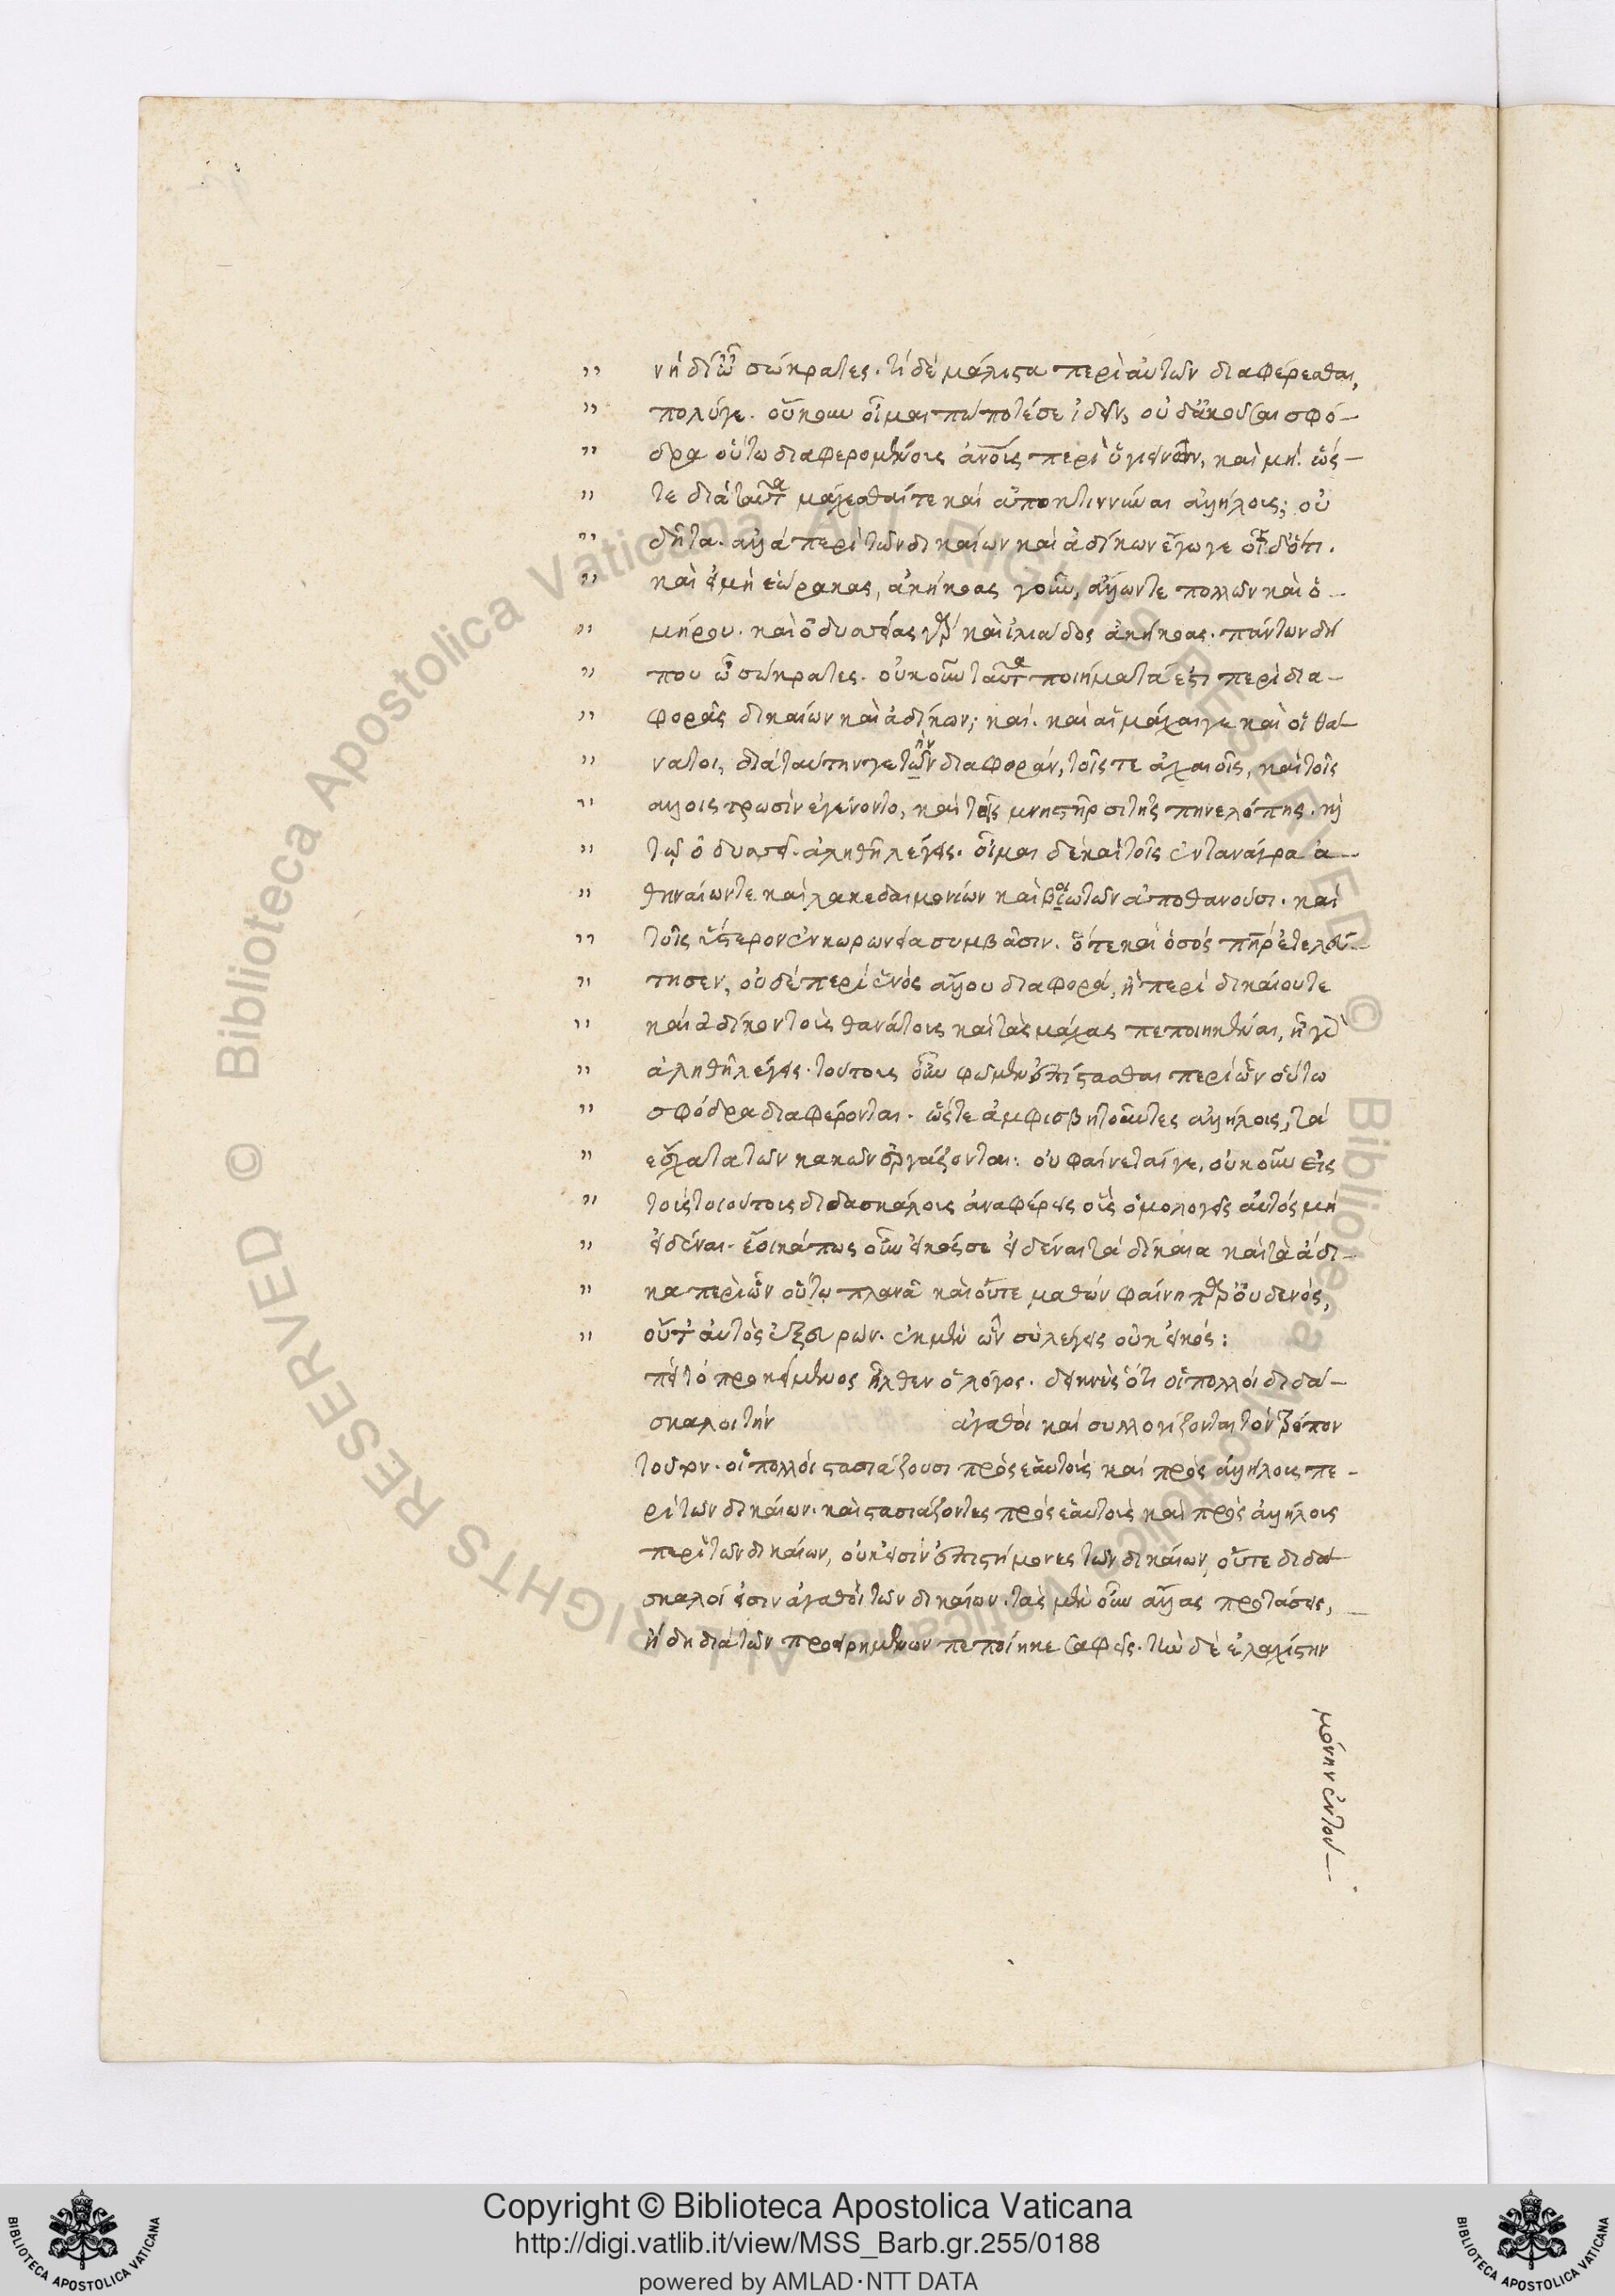 " νὴ δί' ὦ σώκρατες. τί δὲ μάλιστα περὶ αὐτῶν διαφέρεσθαι,
" πολύγε. οὔκουν οἶμαι πώποτέ σε ἰδεῖν, οὐδ' ἀκοῦσαι σφό-
" δρα οὕτω διαφερομένους ἀνοῖς περὶ ὑγιεινῶν, καὶ μή. ὥς-
" τε διὰ ταῦτα μάχεσθαί τε καὶ ἀποκτιννύναι ἀλλήλους; οὐ
" δῆτα. ἀλλὰ περὶ τῶν δικαίων καὶ ἀδίκων ἔγωγε οἶδ' ὅτι.
" καὶ εἰ μὴ ἑώρακας, ἀκήκοας γοῦν, ἄλλων τε πολλῶν καὶ ὁ-
" μήρου. καὶ ὀδυσσείας γὰρ καὶ ἰλιάδος ἀκήκοας. πάντων δή
" που ὦ σώκρατες. οὐκοῦν ταῦτα ποιήματά ἐστι περὶ δια-
" φορᾶς δικαίων καὶ ἀδίκων; καί. καὶ αἱ μάχαι γε καὶ οἱ θά-
" νατοι, διὰ ταύτην γε τὴν διαφορὰν, τοῖς τε ἀχαιοῖς, καὶ τοῖς
" ἄλλοις τρωσὶν ἐγένοντο, καὶ τοῖς μνηστῆρσι τῆς πηνελόπης. καὶ
" τῷ ὀδυσσεῖ. ἀληθῆ λέγεις. οἶμαι δὲ καὶ τοῖς ἐν τανάγρα ἀ-
" θηναίων τε καὶ λακεδαιμονίων καὶ βοιωτῶν ἀποθανοῦσι. καὶ
" τοῖς ὕστερον ἐν κωρωνεία συμβᾶσιν. ὅτε καὶ ὁ σὸς πὴρ ἐτελεύ-
" τησεν, οὐδὲ περὶ ἑνὸς ἄλλου διαφορά, ἢ περὶ δικαίου τε
" καὶ ἀδίκου τοὺς θανάτους καὶ τὰς μάχας πεποιηκέναι, ἢ γὰρ
" ἀληθῆ λέγεις. τούτους οὖν φῶμεν ἐπίστασθαι περὶ ὧν οὕτω
" σφόδρα διαφέρονται. ὥστε ἀμφισβητοῦντες ἀλλήλοις, τὰ
" ἔσχατα τῶν κακῶν ἐργάζονται: οὐ φαίνεταί γε, οὐκοῦν εἰς
" τοὺς τοιούτους διδασκάλους ἀναφέρεις οὓς ὁμολογεῖς αὐτὸς μὴ
" εἰδέναι. ἔοικά πως οὖν εἰκός σε εἰδέναι τὰ δίκαια καὶ τὰ ἄδι-
" κα περὶ ὧν οὕτω πλανᾶ καὶ οὔτε μαθὼν φαίνη παρ' οὐδενός,
" οὔτ' αὐτὸς ἐξευρών. ἐκ μὲν ὧν σὺ λέγεις οὐκ εἰκός:
προκείμενος ἦλθεν ὁ λόγος. δεικνὺς ὅτι οἱ πολλοὶ διδά-
σκαλοι τὴν ἀγαθοὶ καὶ συλλογίζονται τὸν τρόπον
τοῦτον. οἱ πολλοὶ στασιάζουσι πρὸς ἑαυτοὺς καὶ πρὸς ἀλλήλους πε-
ρὶ τῶν δικαίων. καὶ στασιάζοντες πρὸς ἑαυτοὺς καὶ πρὸς ἀλλήλους
περὶ τῶν δικαίων, οὐκ εἰσὶν ἐπιστήμονες τῶν δικαίων, οὔτε διδά-
σκαλοί εἰσιν ἀγαθοὶ τῶν δικαίων. τὰς μὲν οὖν ἄλλας προτάσεις,
ἤδη διὰ τῶν προειρημένων πεποίηκε σαφεῖς. τὴν δὲ ἐλαχίστην
μόνην ἐν τού-
Copyright © Biblioteca Apostolica Vaticana
http://digi.vatlib.it/view/MSS_Barb.gr.255/0188
powered by AMLAD·NTT DATA